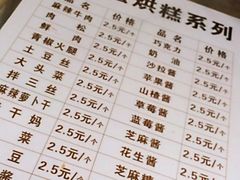 烘糕系列
品名 价格 品名 价格
麻辣牛肉 2.5元/个 巧克力 2.5元/个
肉松 2.5元/个 奶油 2.5元/个
鲜肉 2.5元/个 沙拉酱 2.5元/个
青椒火腿 2.5元/个 苹果酱 2.5元/个
土豆丝 2.5元/个 山楂酱 2.5元/个
大头菜 2.5元/个 草莓酱 2.5元/个
拌三丝 2.5元/个 蓝莓酱 2.5元/个
麻辣萝卜干 2.5元/个 芝麻酱 2.5元/个
老干妈 2.5元/个 花生酱 2.5元/个
菜 2.5元/个 芝麻糖
豆
酱